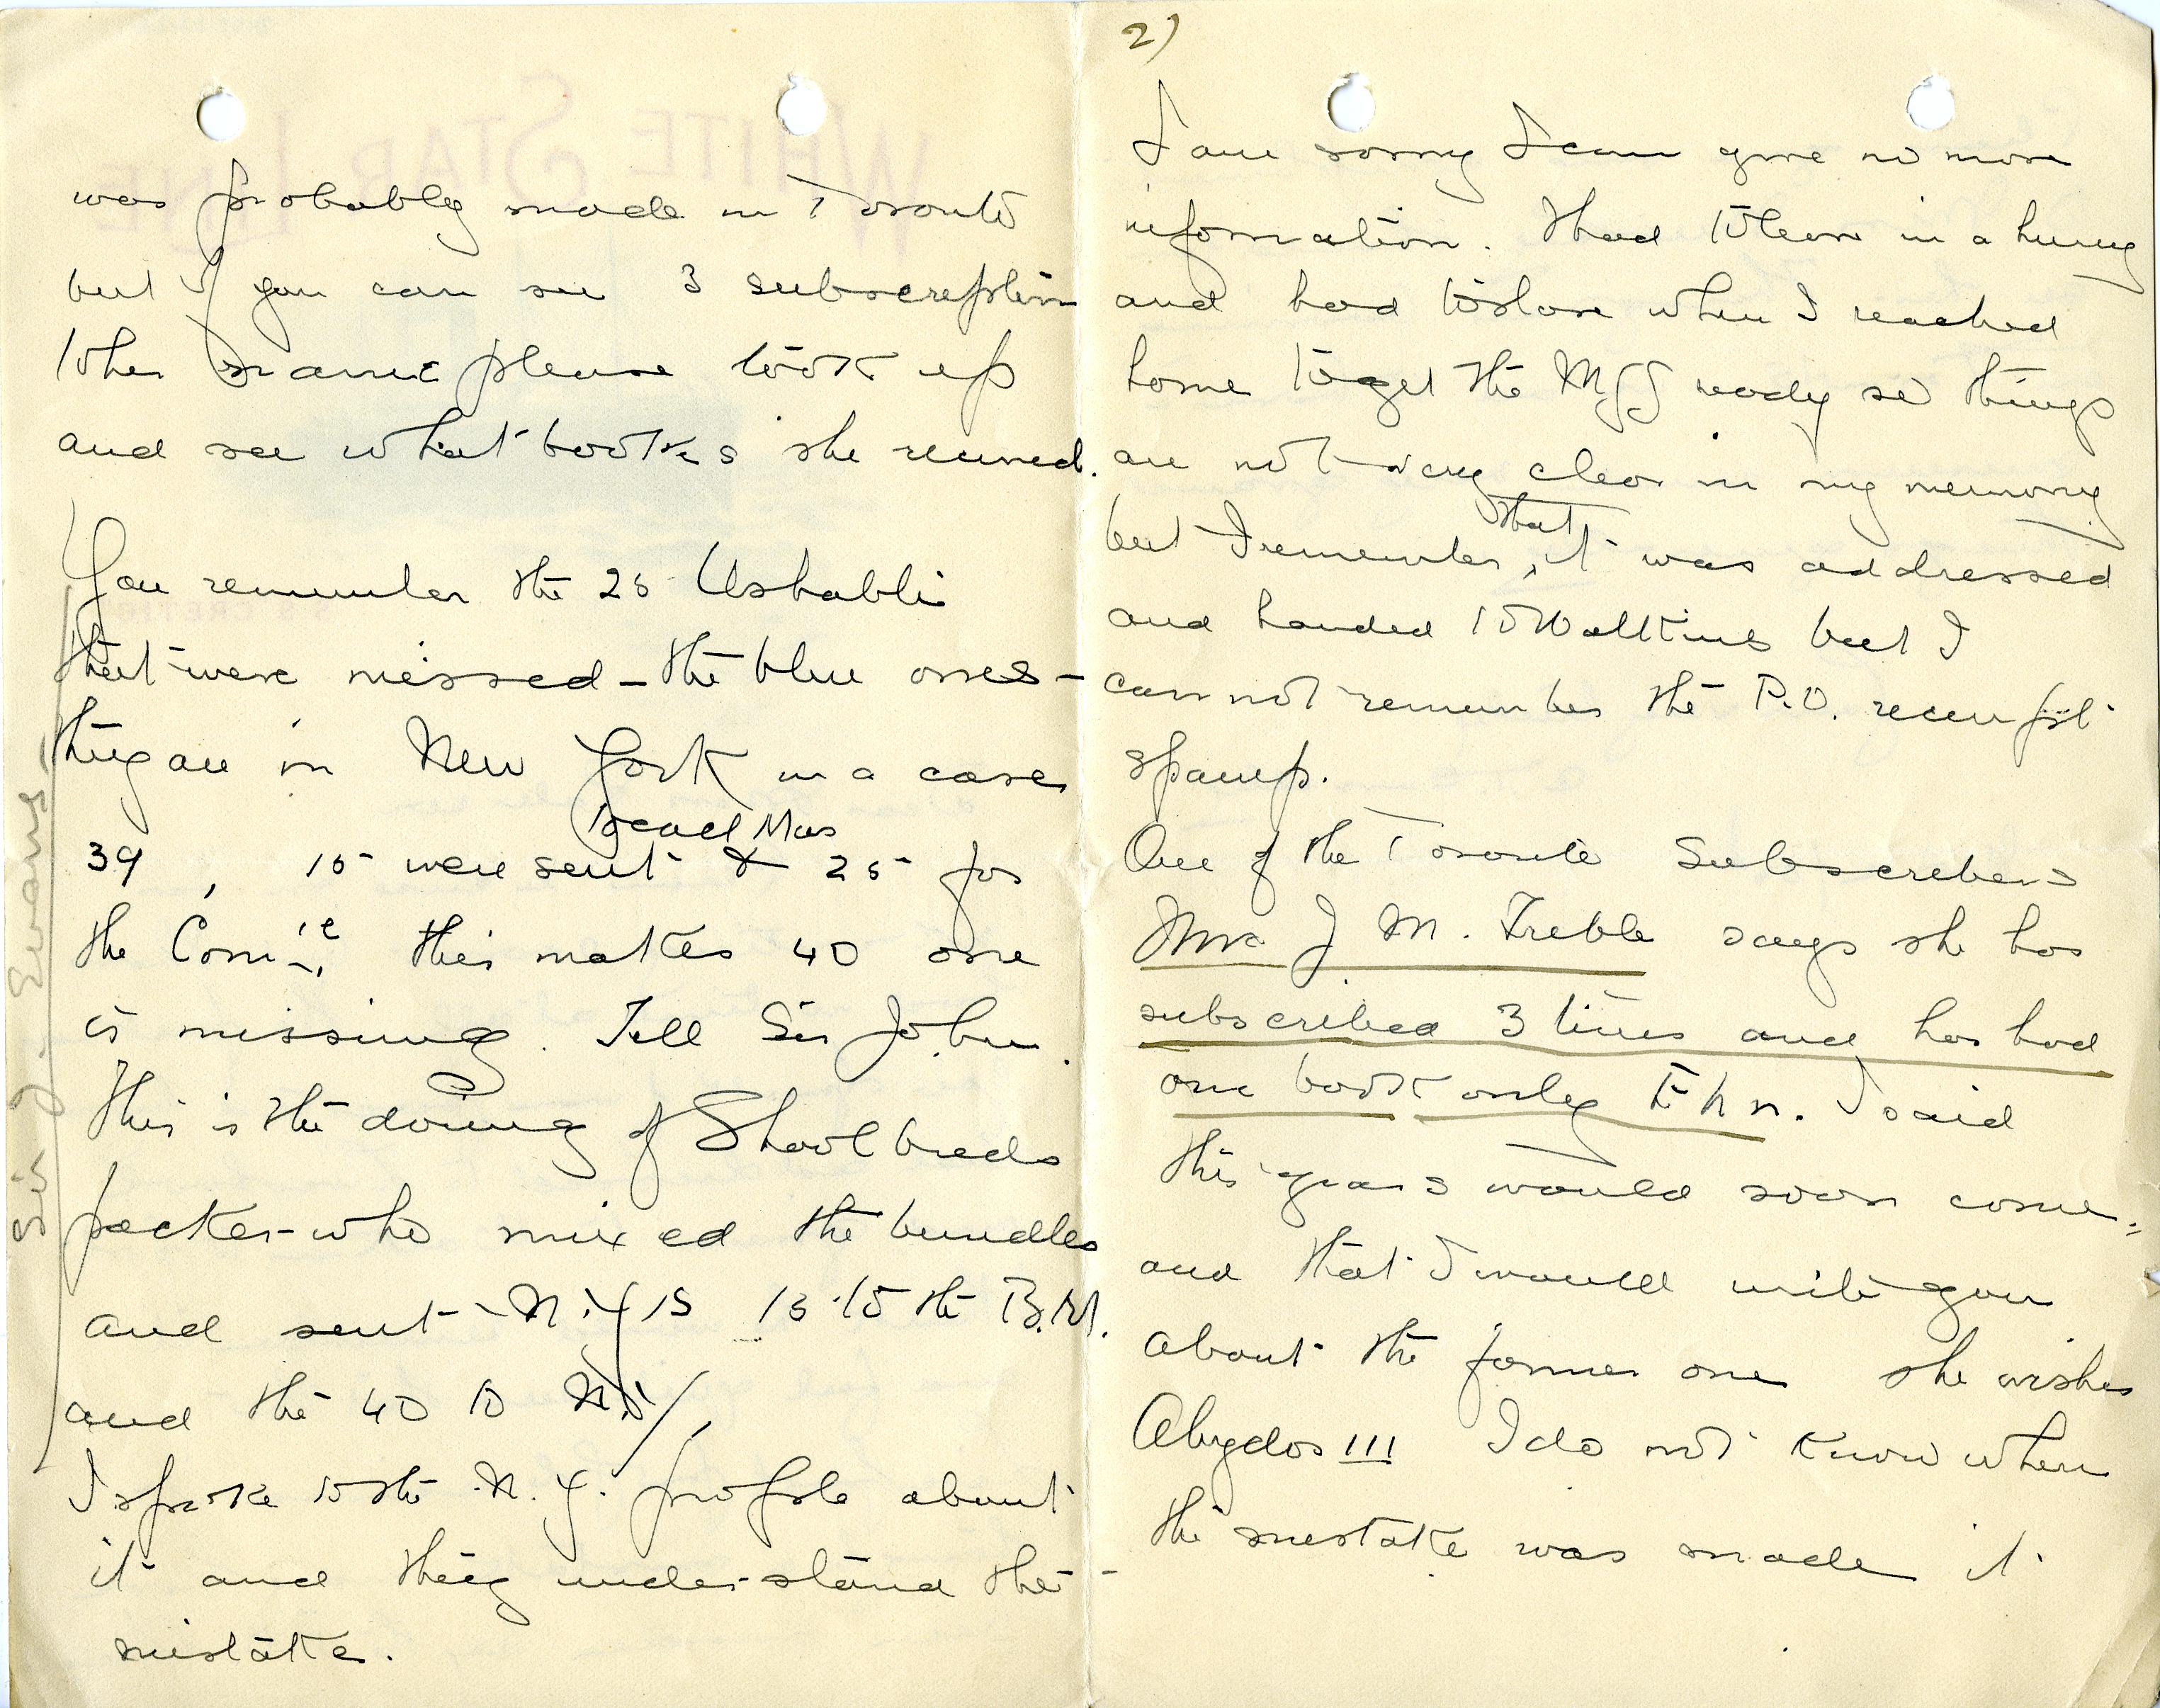 2)
I am sorry I can give no more
information. I had to leave in a hurry
and had to slave when I reached
home to get the MSS ready so things
are not very clear in my memory
but I remember, that it was addressed
and handed to Walltins but I
cannot remember the P.O. receipt
stamp.
One of the Toronto Subscribers
Mrs J M. Treble says she has
subscribed 3 times and has had
one book only Ehn. I said
this years would soon come.
and that I would write you
about the former one she wishes
Abydos III I do not know where
the mistake was made it
was probably made in Toronto
but if you can see 3 subscription
to her name please look up
and see what books she received.
You remember the 25 Ushabti
that were missed – the blue ones –
they are in New York in a case
Bead Mus
39, 15 were sent & 25 for
the Com'te this makes 40 one
is missing. Tell Sir John.
This is the doing of Shoolbreds
packer – who mixed the bundles
and sent N.Y's 15 to the B.M.
and the 40 to N.Y.
I spoke to the N.Y. people about
it and they understand the
mistake.
Sir J. Evans
WHITE STAR LINE